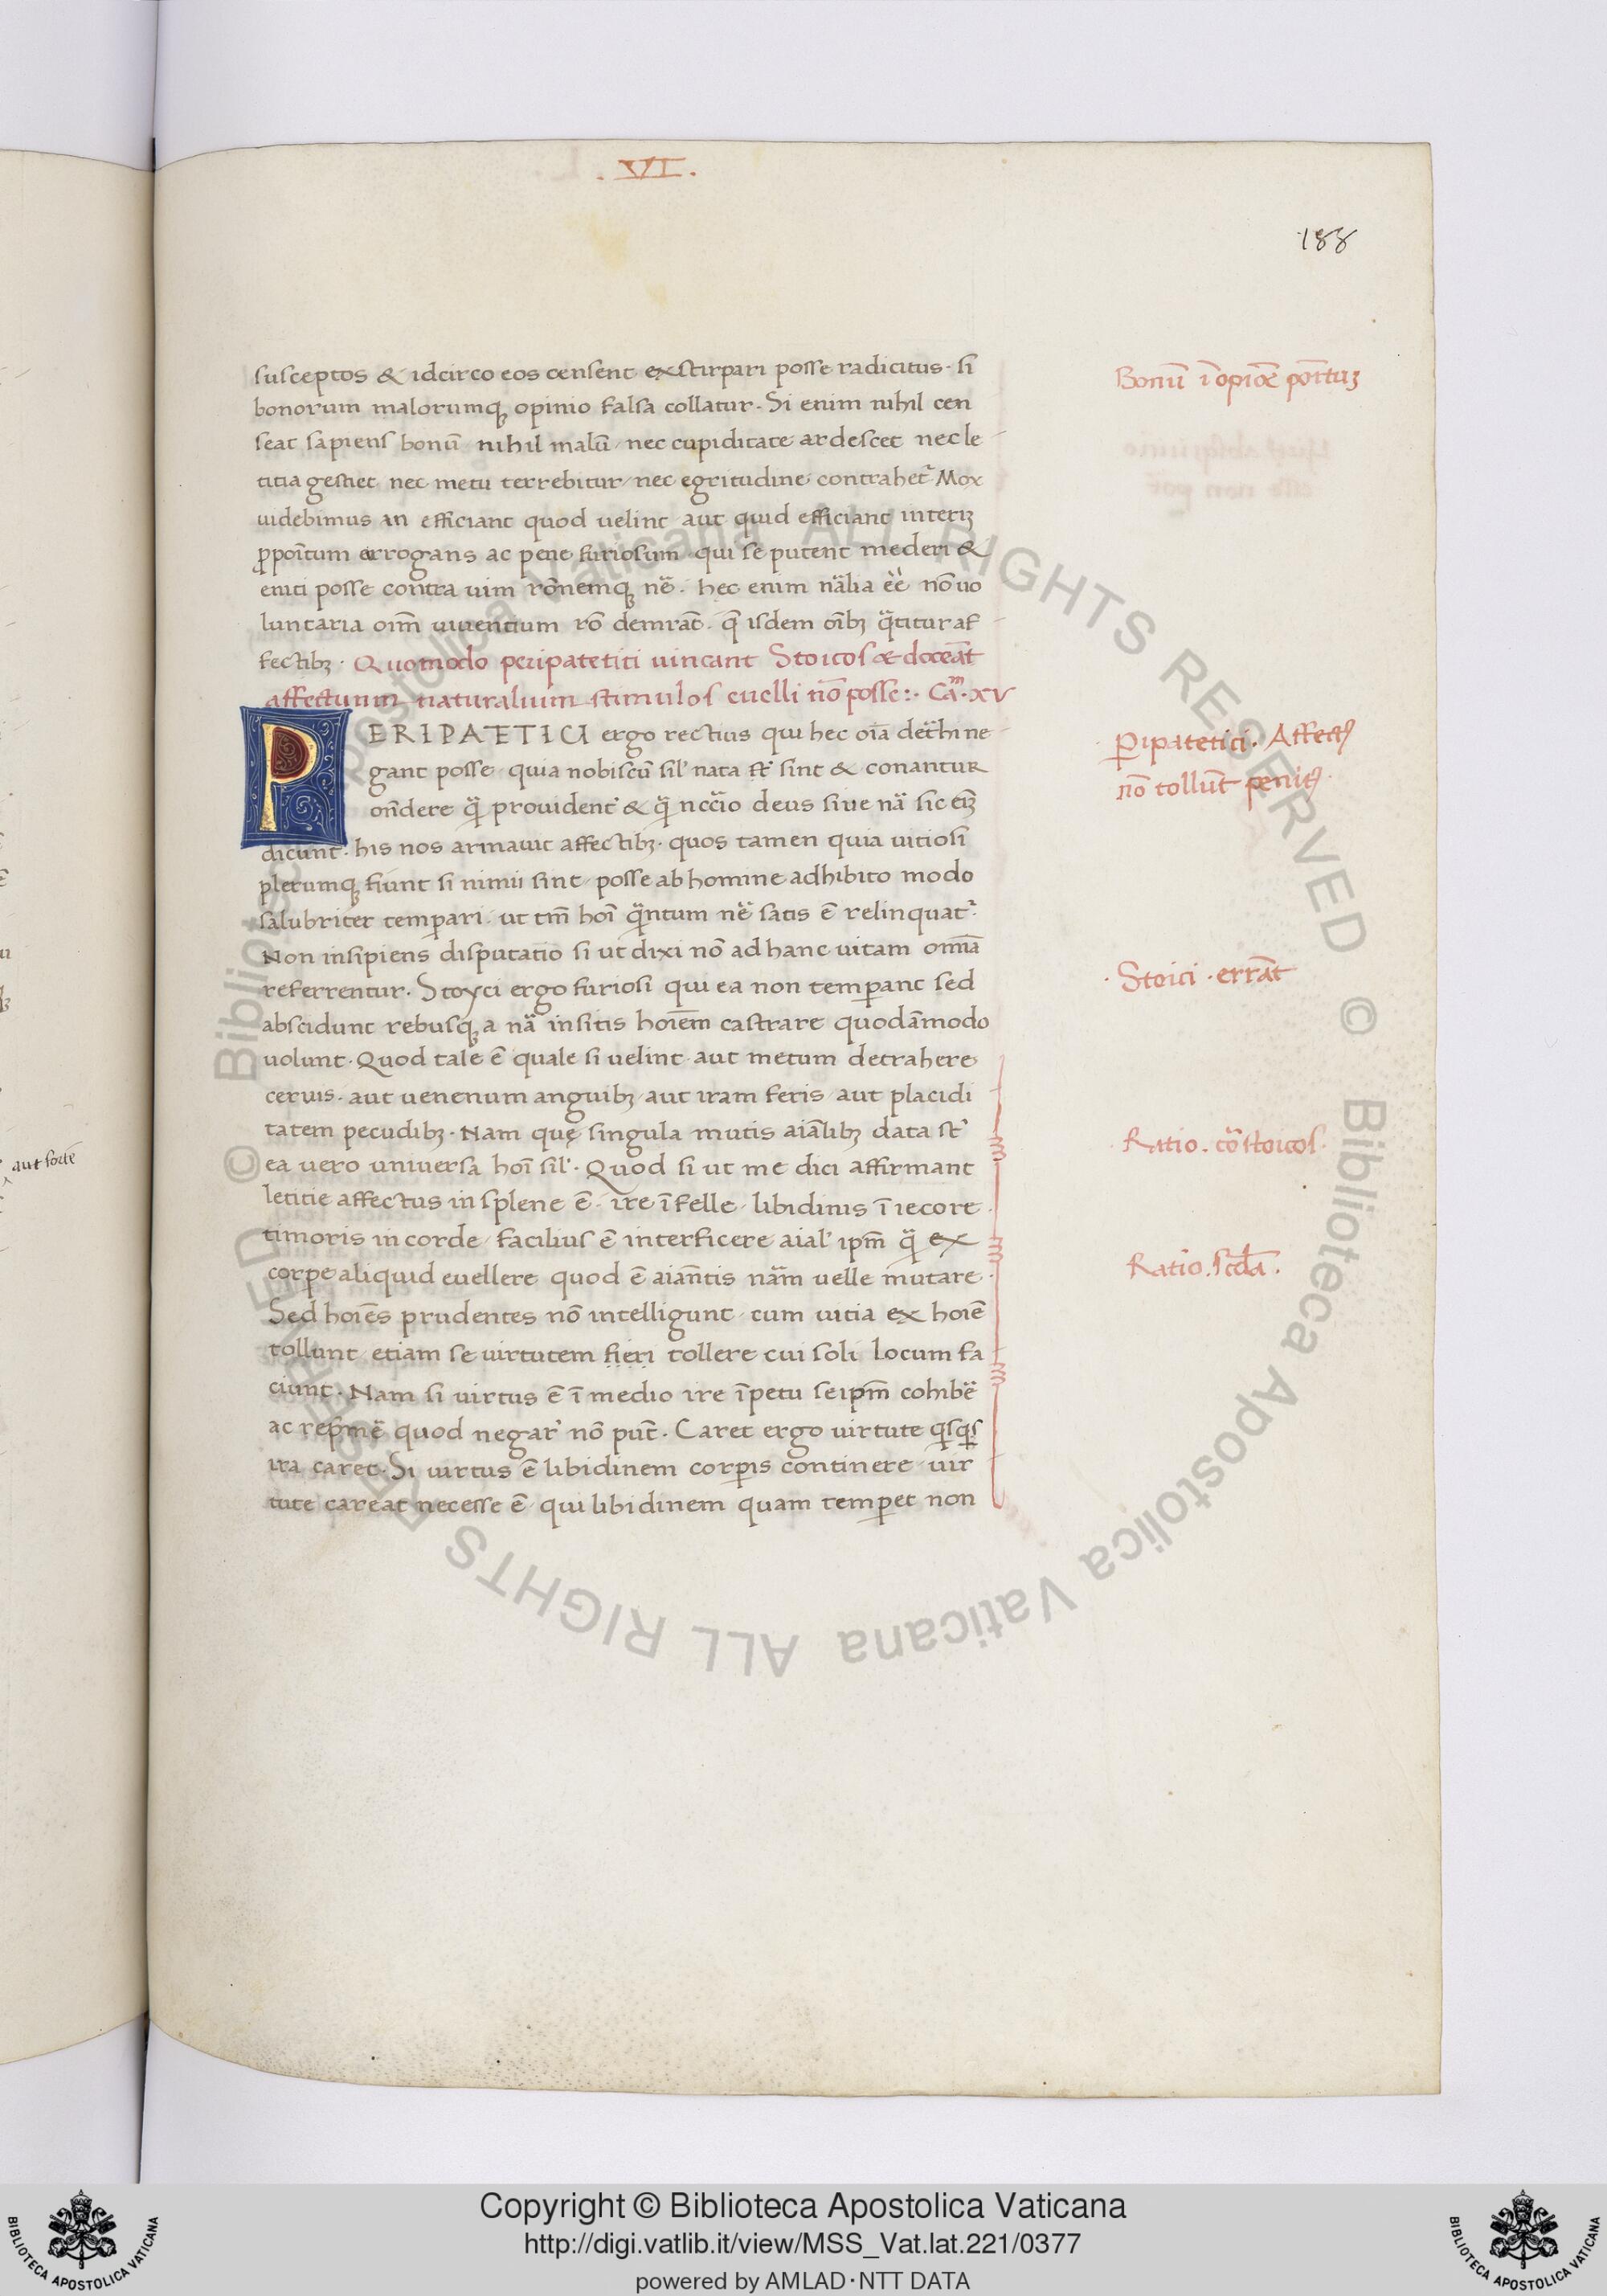 . VI .
188
susceptos & idcirco eos censent exstirpari posse radicitus · si
bonorum malorumqꝫ opinio falsa collatur · Si enim nihil cen
seat sapiens bonū nihil malū / nec cupiditate ardescet nec le
titia gestiet nec metu terrebitur / nec egritudine contrahet᷑ Mox
uidebimus an efficiant quod uelint aut quid efficiant interiꝫ
ꝓpoītum arrogans ac pene furiosum · qui se putent mederi &
eniti posse contra uim rōnemqꝫ nē · hec enim nālia eē nō uo
luntaria oīm̄ uiuentium rō demrāt · q̄ isdem oībꝫ q̄titur af
fectibꝫ · Quomodo peripatetici uincant Stoicos & doceāt
affectuum naturalium stimulos euelli nō posse :· Cām · XV
PERIPATETICI ergo rectius qui hec oīa det̄hi ne
gant posse · quia nobiscū sil' nata st̄ sint & conantur
oñdere q̄ prouident᷑ & q̄ nccīo deus siue nā sic eīꝫ
dicunt · his nos armauit affectibꝫ · quos tamen quia uitiosi
plerumqꝫ fiunt si nimii sint / posse ab homine adhibito modo
salubriter temꝑari · ut tm̄ hoī q̄ntum nē satis ē relinquat᷑
Non insipiens disputatio si ut dixi nō ad hanc uitam omīa
referrentur · Stoyci ergo furiosi qui ea non temꝑant sed
abscidunt rebusqꝫ a nā insitis hoiēm castrare quodāmodo
uolunt · Quod tale ē quale si uelint · aut metum detrahere
ceruis · aut uenenum anguibꝫ / aut iram feris / aut placidi
tatem pecudibꝫ · Nam quę singula mutis aiālibꝫ data st̄
ea uero uniuersa hoī sil' · Quod si ut me dici affirmant
letitie affectus in splene ē · ire ī felle / libidinis ī iecore
timoris in corde / facilius ē interficere aial' ipm̄ q̄ ex
corpe aliquid euellere quod ē aiañtis nām uelle mutare ·
Sed hoiēs prudentes nō intelligunt / cum uitia ex hoiē
tollunt / etiam se uirtutem fieri tollere cui soli locum fa
ciunt · Nam si uirtus ē ī medio ire īpetu seipm̄ cohibē
ac rep̄mē quod negar' nō pūt · Caret ergo uirtute q̄sq̄s
ira caret · Si uirtus ē libidinem corꝑis continere / uir
tute careat necesse ē / qui libidinem quam temꝑet non
Bonū ī opiōe poītuꝫ
Ꝑipatetici · Affectꝰ
nō tollūt penitꝰ ·
· Stoici · errāt
Ratio · cō stoicos ·
Ratio · scd̄a ·
aut forte
© Biblioteca Apostolica Vaticana ALL RIGHTS RESERVED © Biblioteca Apostolica Vaticana ALL RIGHTS RESERVED
Copyright © Biblioteca Apostolica Vaticana
http://digi.vatlib.it/view/MSS_Vat.lat.221/0377
powered by AMLAD · NTT DATA
BIBLIOTECA APOSTOLICA VATICANA
BIBLIOTECA APOSTOLICA VATICANA